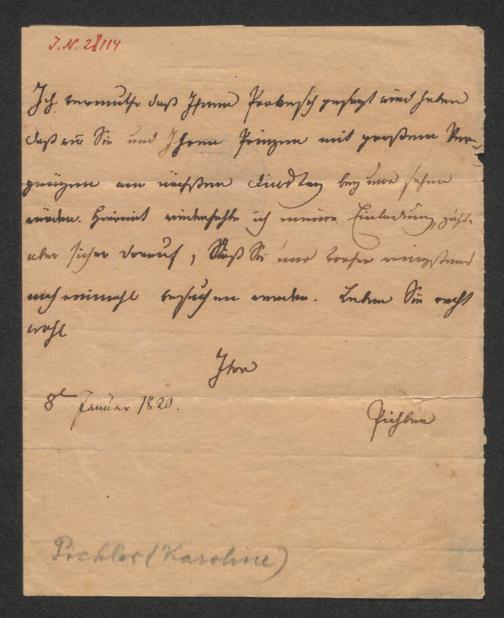 J. N. 28114
Ich vermuthe daß Ihnen Prokesch gesagt wird haben
daß wir Sie und Ihren Prinzen mit großem Ver-
gnügen am nächsten Dinstag bey uns sehen
würden. Hiermit wiederhohle ich meine Einladung, zähle
aber sicher darauf, daß Sie uns vorher wenigstens
noch einmahl besuchen werden. Leben Sie recht
wohl
Ihre
8t Januar 1820.
Pichler
Pichler (Karoline)